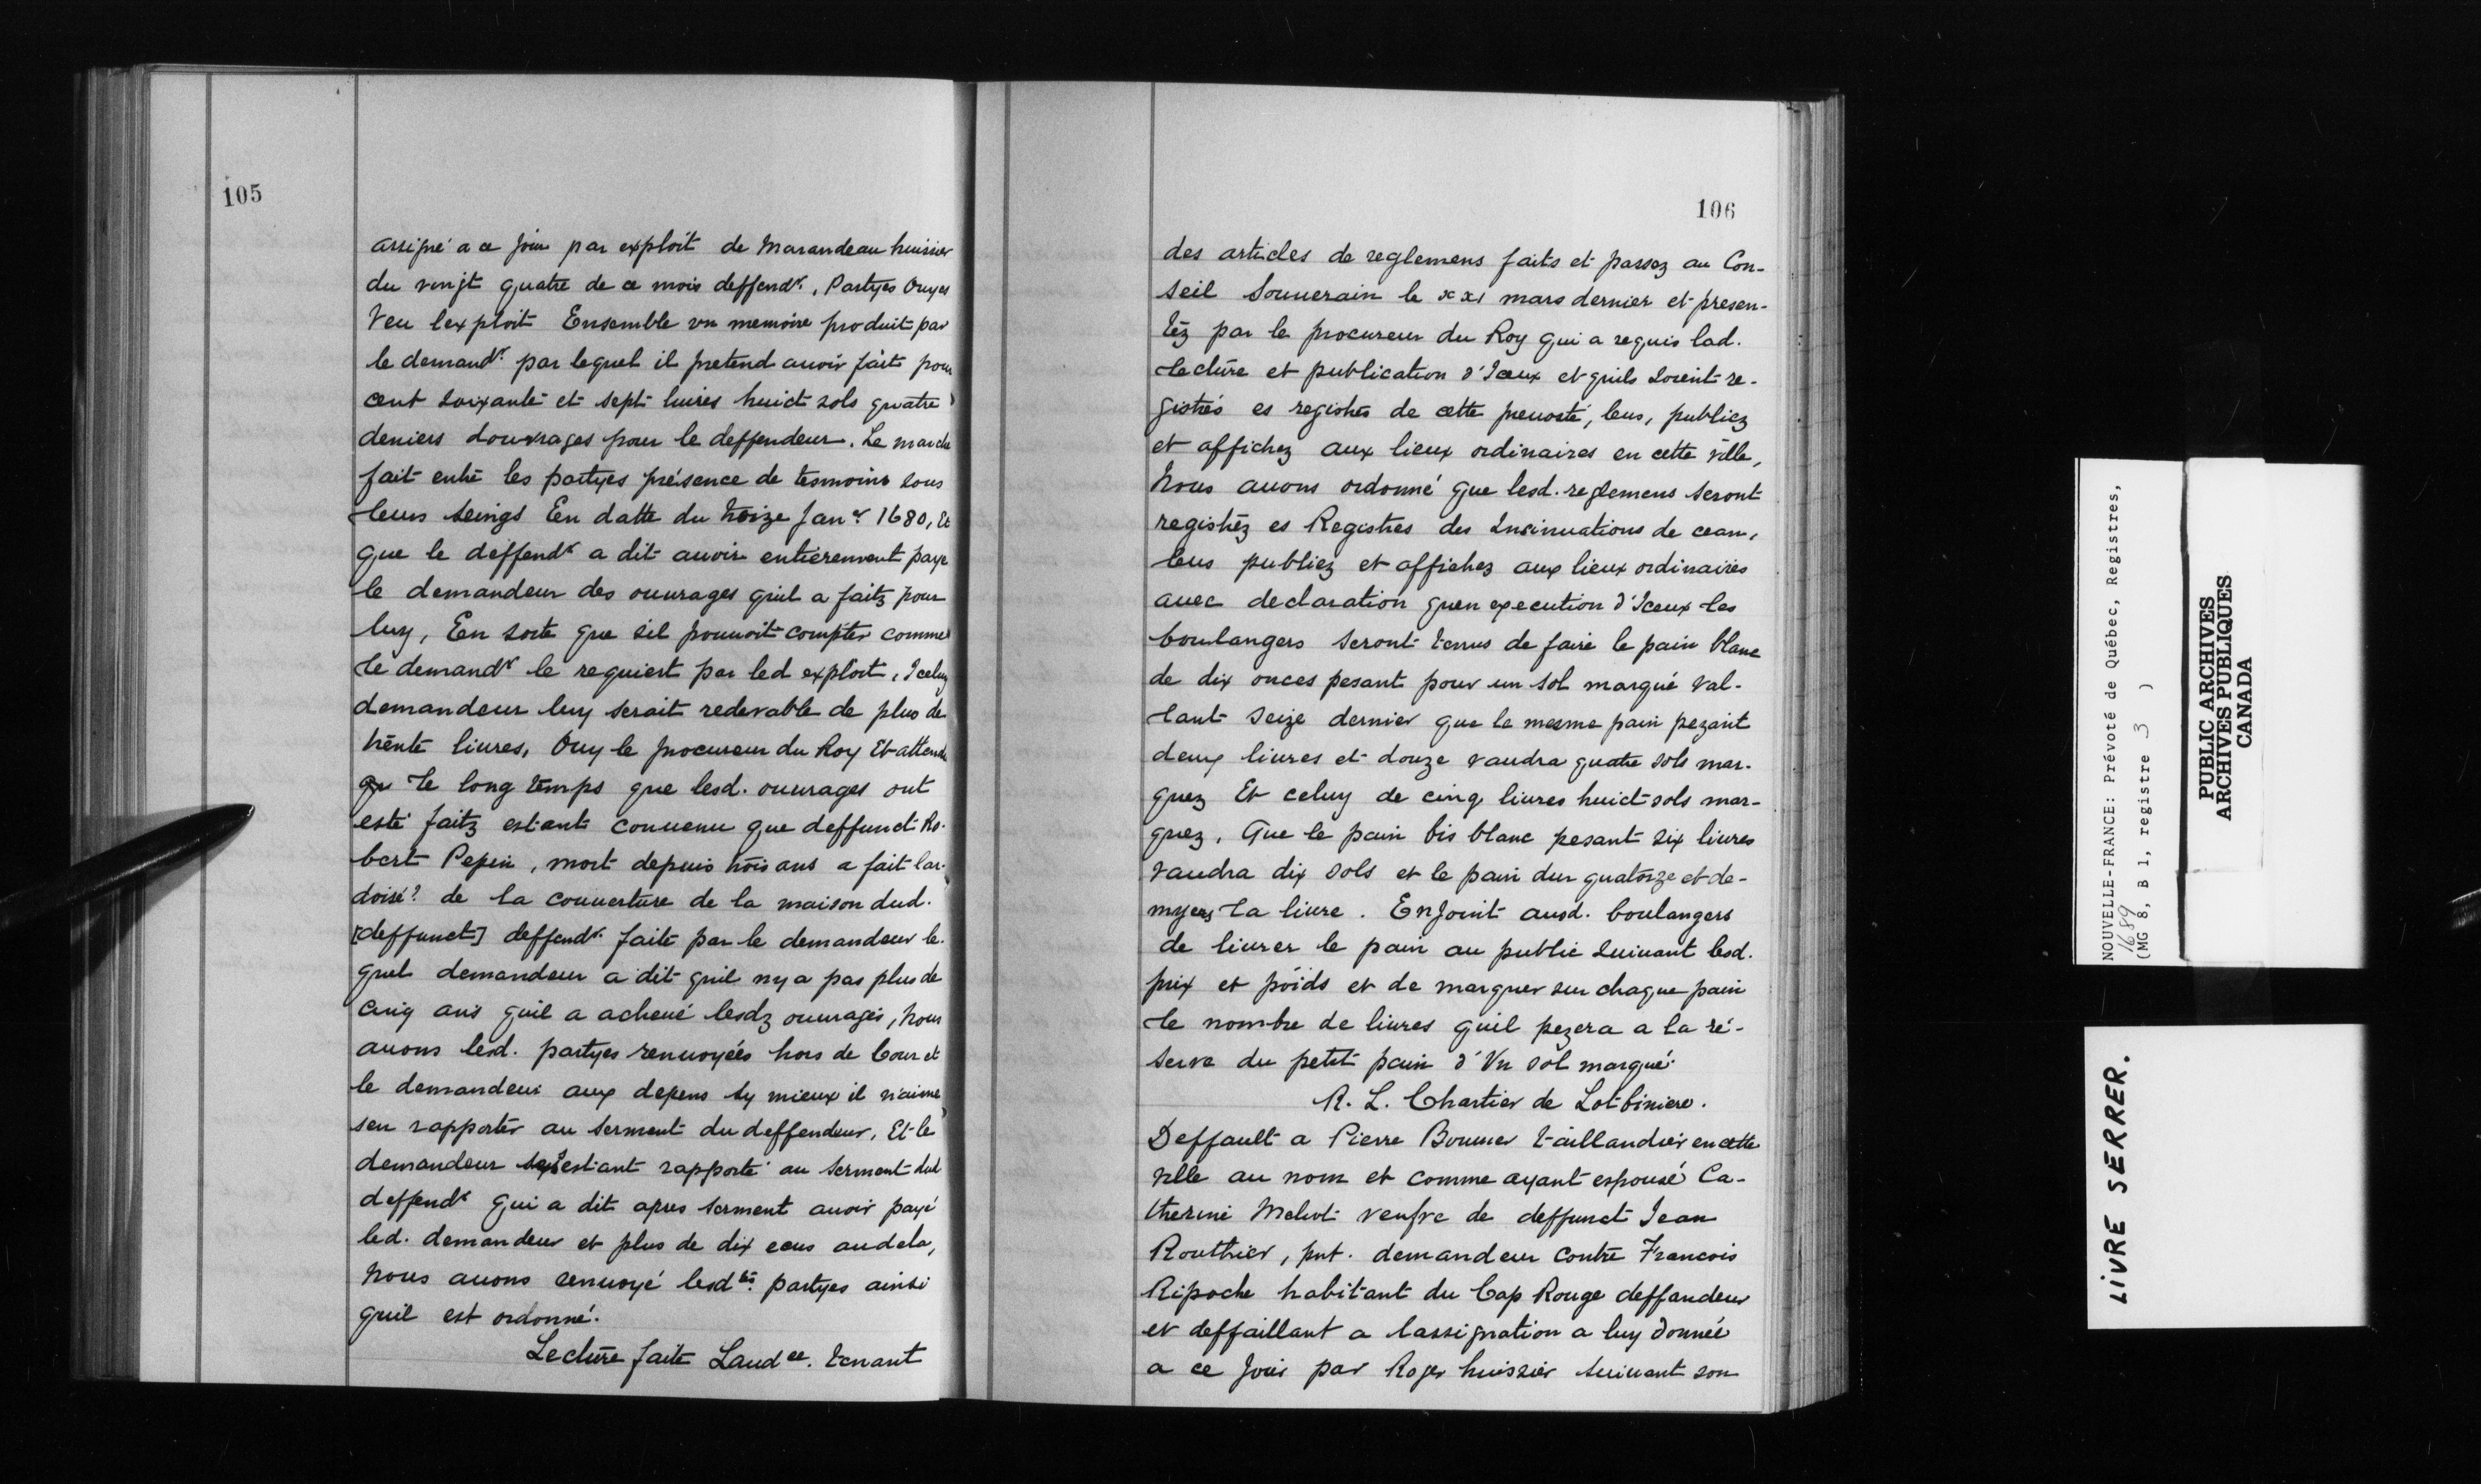 105
assigné a ce Jour par exploit de Marandeau huissier
du vingt quatre de ce mois deffendr. Partyes Ouyes
Veu lexploit Ensemble vn memoire produit par
le demandr par lequel il pretend auoir fait pour
cent soixante et sept liures huict sols quatre
deniers douurages pour le deffendeur. Le marche
fait entre les partyes présence de tesmoins sous
leurs seings En datte du treize Janer 1680, Et
que le deffendr a dit auoir entierement paye
le demandeur des ouurages quil a faitz pour
luy, En sorte que sil pouuoit compter comme
le demandr le requiert par led exploit, Iceluy
demandeur luy serait redevable de plus de
trente liures, Ouy le procureur du Roy Et attendu
qu le long temps que lesd. ouurages ont
esté faitz estant conuenu que deffunct Ro-
bert Pepin, mort depuis trois ans a fait lar-
doise? de la couuerture de la maison dud.
[deffunct] deffendr. faite par le demandeur le-
quel demandeur a dit quil ny a pas plus de
cinq ans quil a acheué lesdz ouurages, nous
auons lesd. partyes renuoyées hors de Cour et
le demandeur aux depens sy mieux il n'aime
sen rapporter au serment du deffendeur, Et le
demandeur sestant rapporté au serment dud
deffendr qui a dit apres serment auoir payé
led. demandeur et plus de dix ecus audela,
nous auons renuoyé lesdtes. partyes ainsi
quil est ordonné.
Lecture faite Laudce. tenant
106
des articles de reglemens faits et passez au Con-
seil Souuerain le xxi mars dernier et presen-
téz par le procureur du Roy qui a requis lad.
lecture et publication d'Iceux et quils soient re-
gistrés es registres de cette preuosté, leus, publiez
et affichez aux lieux ordinaires en cette ville,
Nous auons ordonné que lesd. reglemens seront
registréz es Registres des Insinuations de ceans,
leus publiez et affichez aux lieux ordinaires
auec declaration quen execution d'Iceux les
boulangers seront tenus de faire le pain blanc
de dix onces pesant pour un sol marqué val-
lant seize dernier que le mesme pain pezant
deux liures et douze vaudra quatre sols mar-
quez Et celuy de cinq liures huict sols mar-
quez, Que le pain bis blanc pesant six liures
vaudra dix sols et le pain dur quatorze et de-
myers la liure. Enjoint ausd. boulangers
de liurer le pain au public suiuant lesd.
prix et poids et de marquer sur chaque pain
le nombre de liures quil pezera a la ré-
serve du petit pain d'Vn sol marqué.
R. L. Chartier de Lotbiniere.
Deffault a Pierre Bouuier taillandier en cette
ville au nom et comme ayant espousé Ca-
therine Meliot veufve de deffunct Jean
Routhier, pnt. demandeur contre Francois
Ripoche habitant du Cap Rouge deffandeur
et deffaillant a lassignation a luy donnée
a ce Jour par Roger huissier suiuant son
NOUVELLE-FRANCE: Prévoté de Québec, Registres,
1689
(MG 8, B 1, registre 3 )
PUBLIC ARCHIVES
ARCHIVES PUBLIQUES
CANADA
LIVRE SERRER.